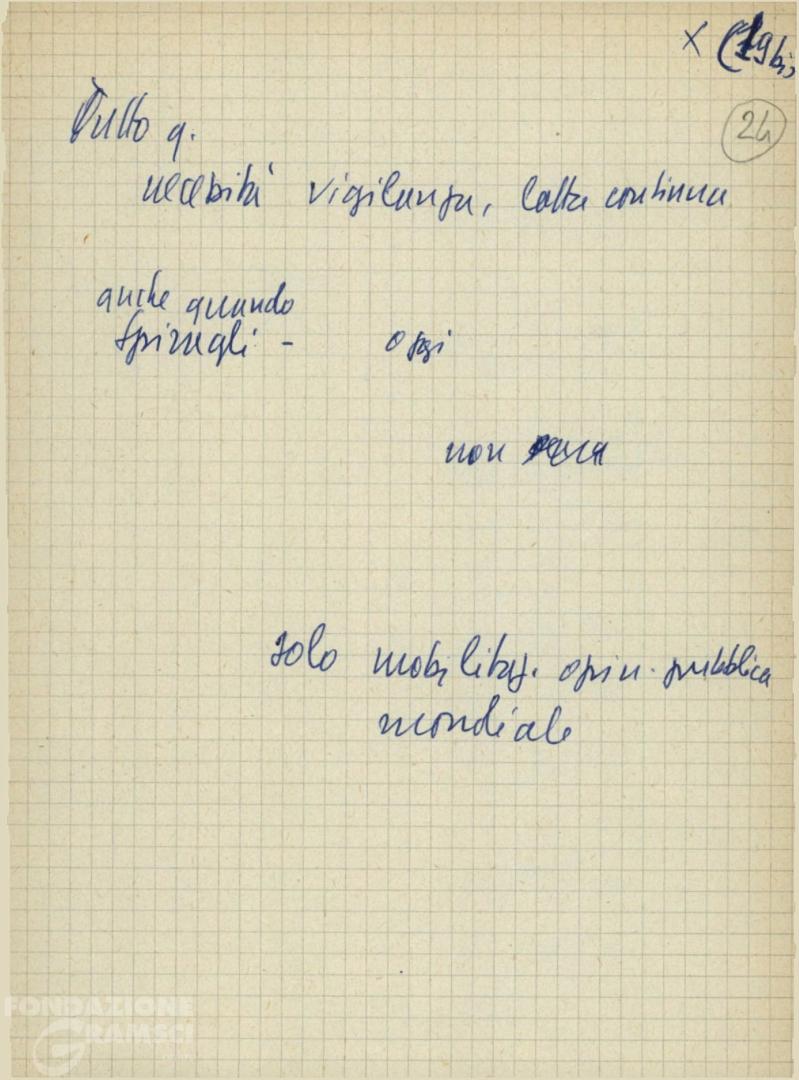 x (19 bis
24
Tutto q.
necessità vigilanza, lotta continua
anche quando
spiragli - oggi
non
solo mobilitaz. opin. pubblica
mondiale
FONDAZIONE
GRAMSCI